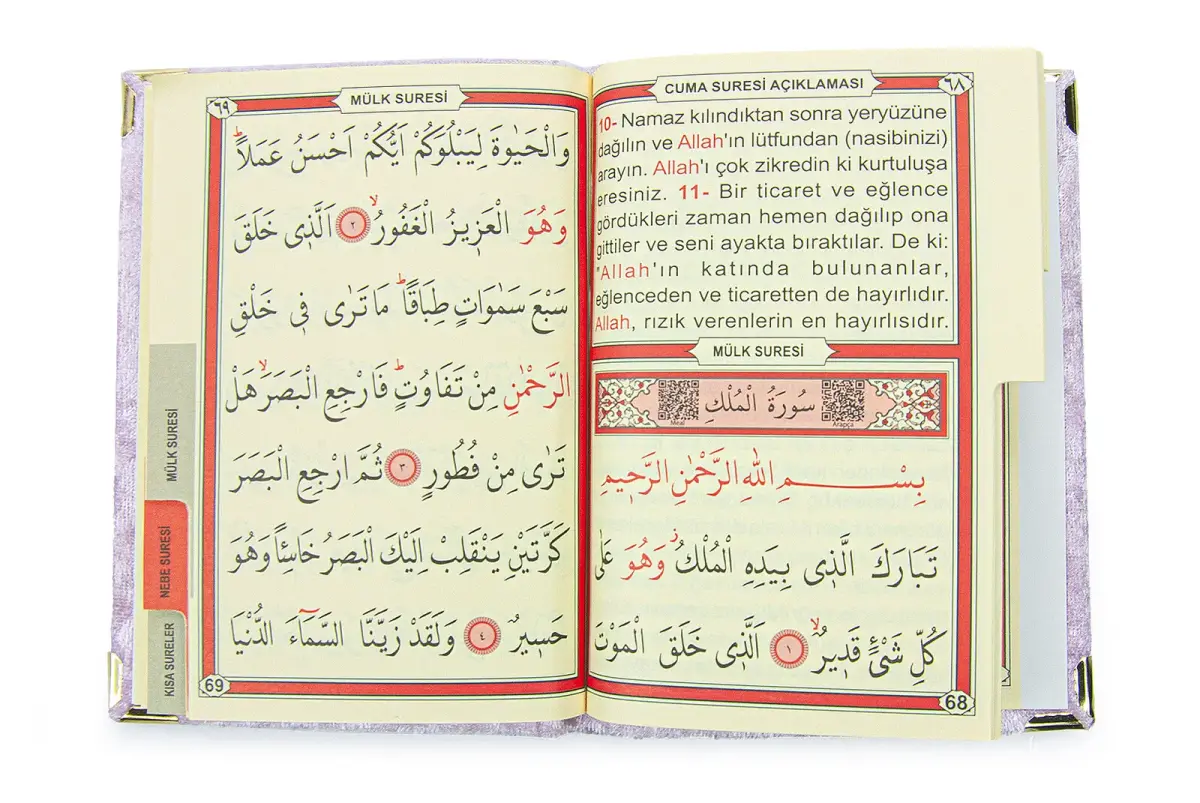 CUMA SURESİ AÇIKLAMASI
٦٨
10- Namaz kılındıktan sonra yeryüzüne
dağılın ve Allah'ın lütfundan (nasibinizi)
arayın. Allah'ı çok zikredin ki kurtuluşa
eresiniz. 11- Bir ticaret ve eğlence
gördükleri zaman hemen dağılıp ona
gittiler ve seni ayakta bıraktılar. De ki:
"Allah'ın katında bulunanlar,
eğlenceden ve ticaretten de hayırlıdır.
Allah, rızık verenlerin en hayırlısıdır.
MÜLK SURESİ
سُورَةُ الْمُلْكِ
Meal
Arapça
بِسْمِ اللّٰهِ الرَّحْمٰنِ الرَّحٖيمِ
تَبَارَكَ الَّذٖي بِيَدِهِ الْمُلْكُؗ وَهُوَ عَلٰى
كُلِّ شَيْءٍ قَدٖيرٌۙ ﴿١﴾ اَلَّذٖي خَلَقَ الْمَوْتَ
68
٦٩
MÜLK SURESİ
وَالْحَيٰوةَ لِيَبْلُوَكُمْ اَيُّكُمْ اَحْسَنُ عَمَلاًؕ
وَهُوَ الْعَزٖيزُ الْغَفُورُۙ ﴿٢﴾ اَلَّذٖي خَلَقَ
سَبْعَ سَمٰوَاتٍ طِبَاقًاؕ مَا تَرٰى فٖي خَلْقِ
الرَّحْمٰنِ مِنْ تَفَاوُتٍؕ فَارْجِعِ الْبَصَرَۙ هَلْ
تَرٰى مِنْ فُطُورٍ ﴿٣﴾ ثُمَّ ارْجِعِ الْبَصَرَ
كَرَّتَيْنِ يَنْقَلِبْ اِلَيْكَ الْبَصَرُ خَاسِئًا وَهُوَ
حَسٖيرٌ ﴿٤﴾ وَلَقَدْ زَيَّنَّا السَّمَٓاءَ الدُّنْيَا
69
MÜLK SURESİ
NEBE SURESİ
KISA SURELER